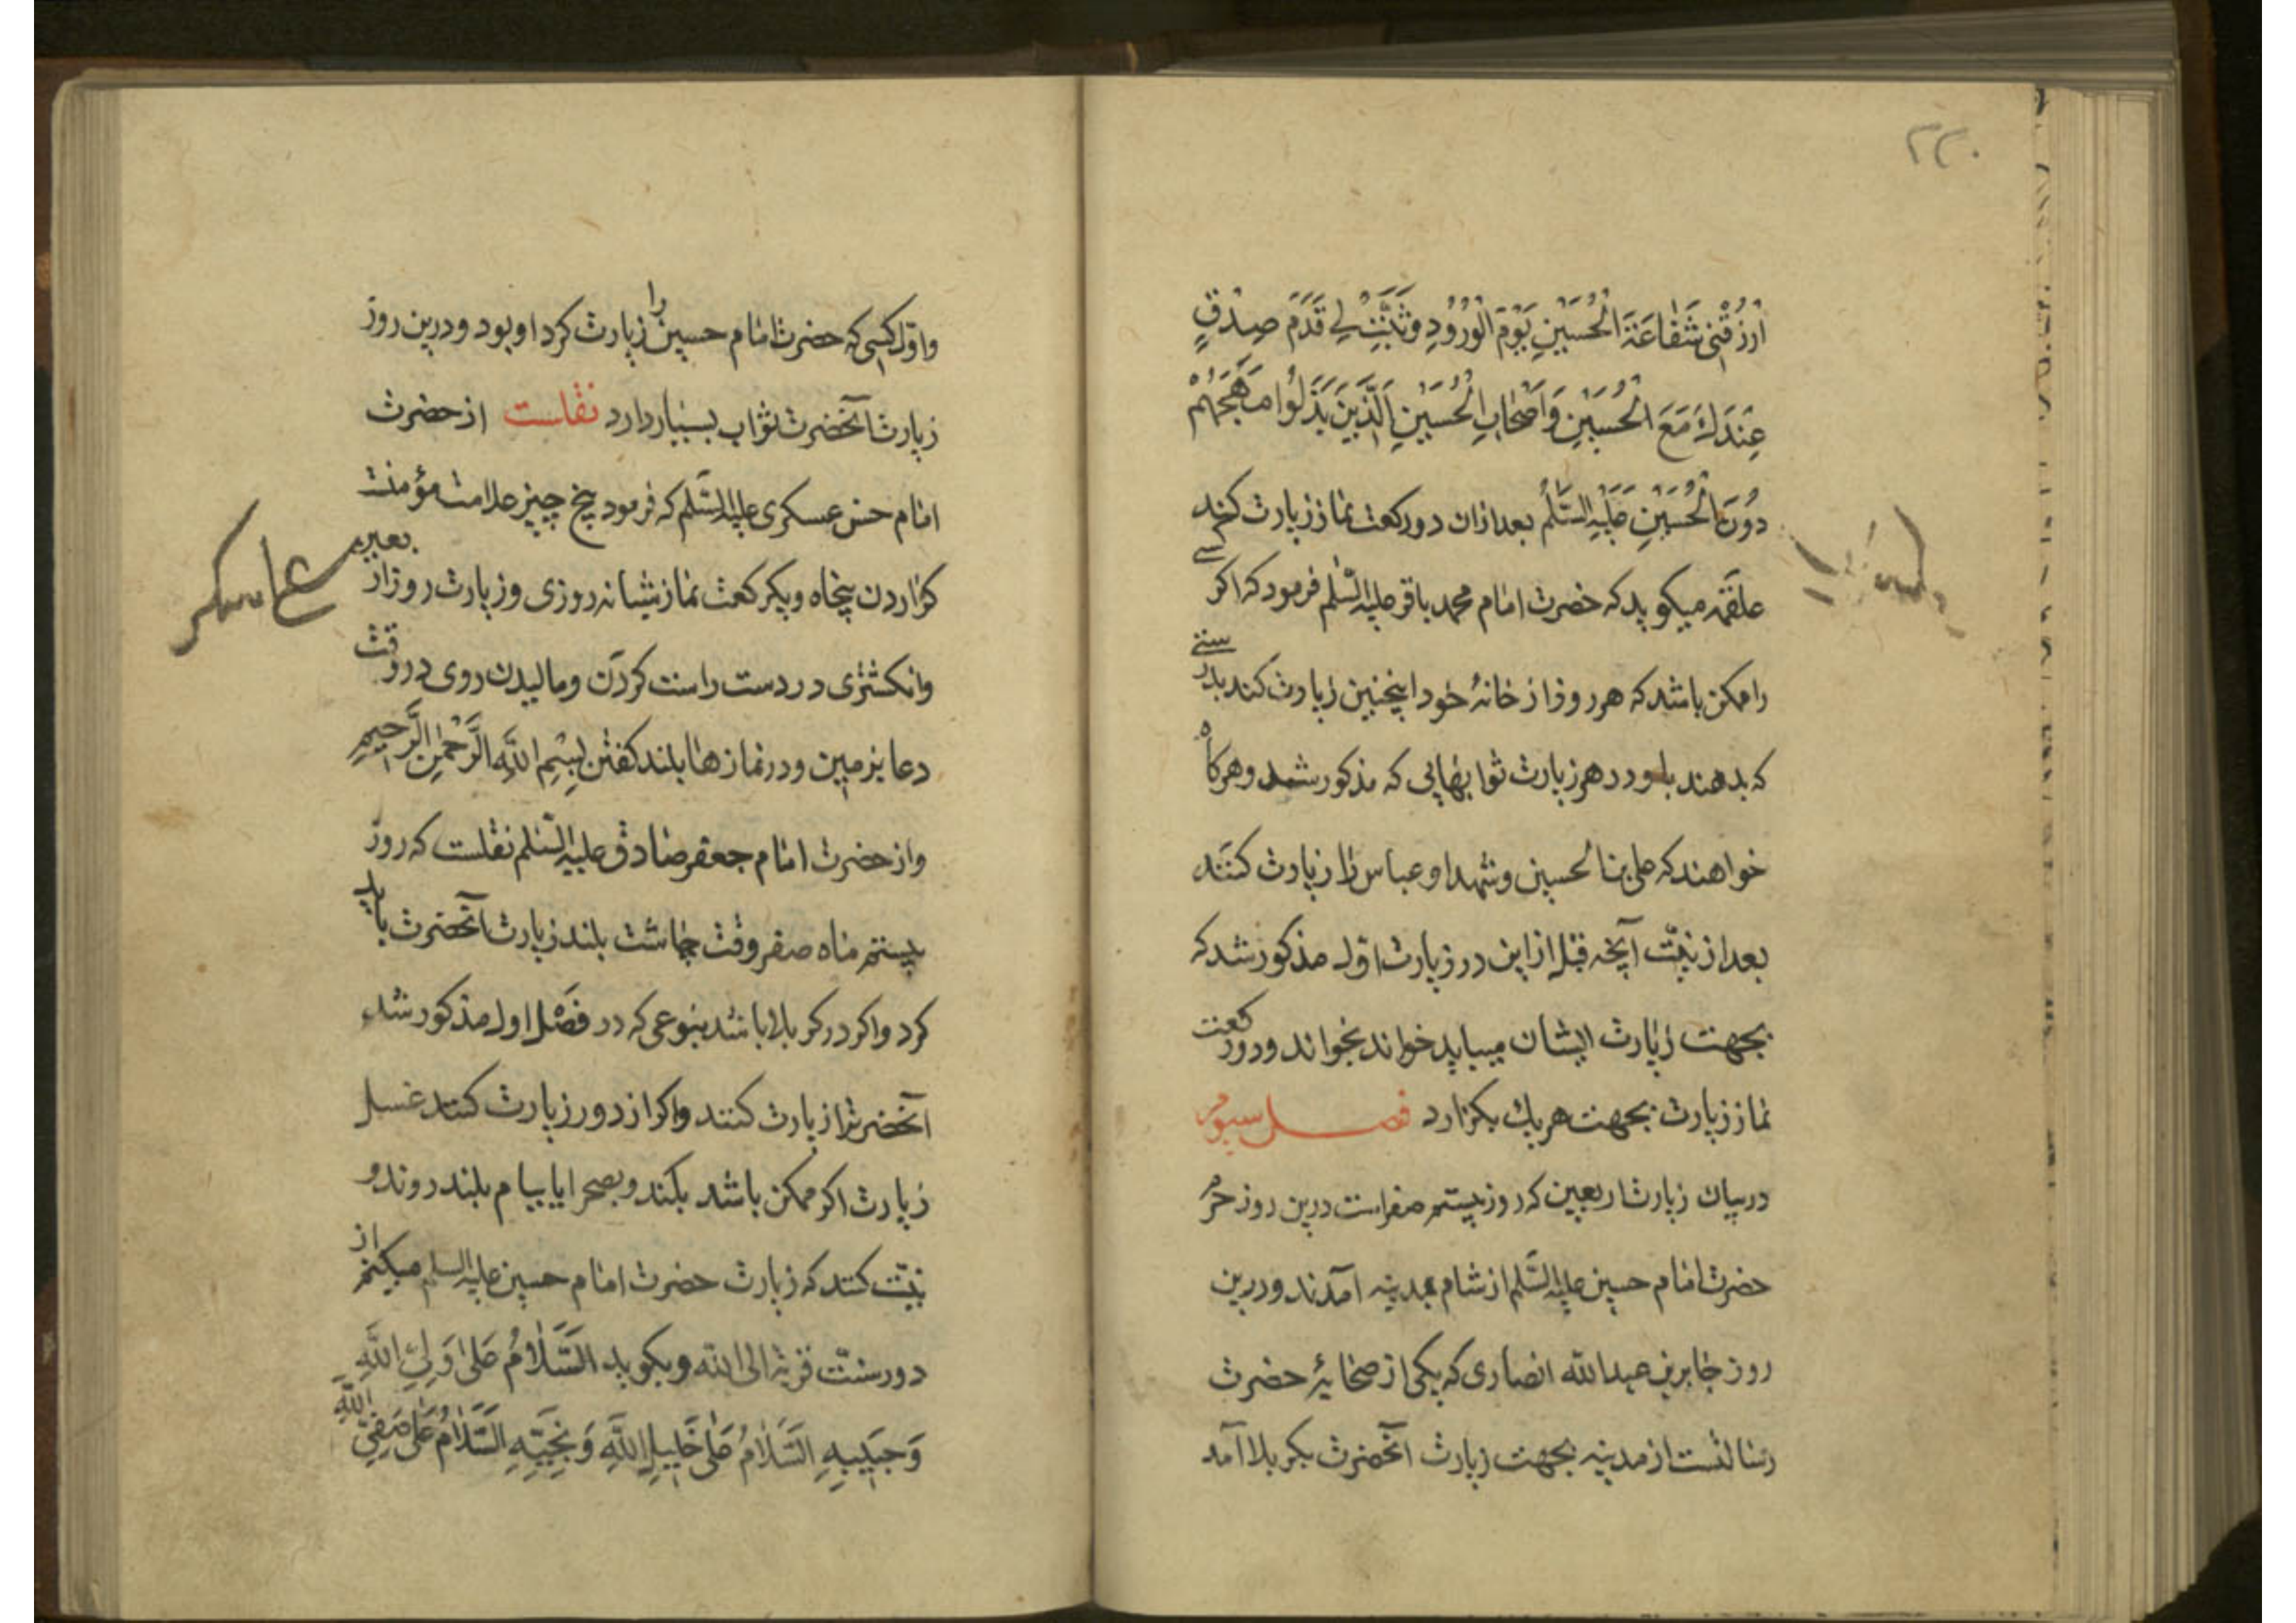 ۲۲۰
اَرْزُقْنی شَفٰاعَةَ الْحُسَیْنِ یَوْمَ الْوُرُودِ وَثَبِّتْ لی قَدَمَ صِدْقٍ
عِنْدَكَ مَعَ الْحُسَیْنِ وَاَصْحٰابِ الْحُسَیْنِ الَّذِینَ بَذَلُوا مُهَجَهُمْ
دُونَ الْحُسَیْنِ عَلَیْهِ السَّلٰمُ بعد ازان دو رکعت نماز زیارت کند
علقمه میکوید که حضرت امام محمد باقر علیه السّلم فرمود که اکر کسی
را ممکن باشد که هر روز از خانهٔ خود اینچنین زیارت کند بدرستی
که بدهند باو در هر زیارت ثوابهایی که مذکور شد و هرکاه
خواهند که علی بن الحسین و شهدا و عباس را زیارت کنند
بعد از نیّت آنچه قبل از این در زیارت اول مذکور شد که
بجهت زیارت ایشان میباید خواند بخواند و دو رکعت
نماز زیارت بجهت هر یك بکزارد فصل سیوم
در بیان زیارت اربعین که روز بیستم صفر است درین روز حرم
حضرت امام حسین علیه السّلم از شام بمدینه آمدند و درین
روز جابر بن عبدالله انصاری که یکی از صحابهٔ حضرت
رسالتست از مدینه بجهت زیارت آنحضرت بکربلا آمد
و اول کسی که حضرت امام حسین را زیارت کرد او بود و درین روز
زیارت آنحضرت ثواب بسیار دارد نقلست از حضرت
امام حسن عسکری علیه السّلم که فرمود پنج چیز علامت مؤمنست
کزاردن پنجاه و یکرکعت نماز شبانه روزی و زیارت روز اربعین
وانکشتری در دست راست کردن و مالیدن روی در وقت
دعا بزمین و در نمازها بلند کفتن بِسْمِ اللهِ الرَّحْمٰنِ الرَّحیمِ
و از حضرت امام جعفر صادق علیه السّلم نقلست که روز
بیستم ماه صفر وقت چاشت بلند زیارت آنحضرت باید
کرد و اکر در کربلا باشد بنوعی که در فصل اول مذکور شد
آنحضرت را زیارت کنند و اکر از دور زیارت کنند غسل
زیارت اکر ممکن باشد بکند و بصحرا یا ببام بلند روند و
نیّت کند که زیارت حضرت امام حسین علیه السلم میکنم از
دور سنّت قربة الی الله و بکوید السَّلٰامُ عَلیٰ وَلِیِّ اللهِ
وَحَبیبِهِ السَّلٰامُ عَلیٰ خَلیلِ اللهِ وَنَجِیبِهِ السَّلٰامُ عَلیٰ صَفِیِّ اللهِ